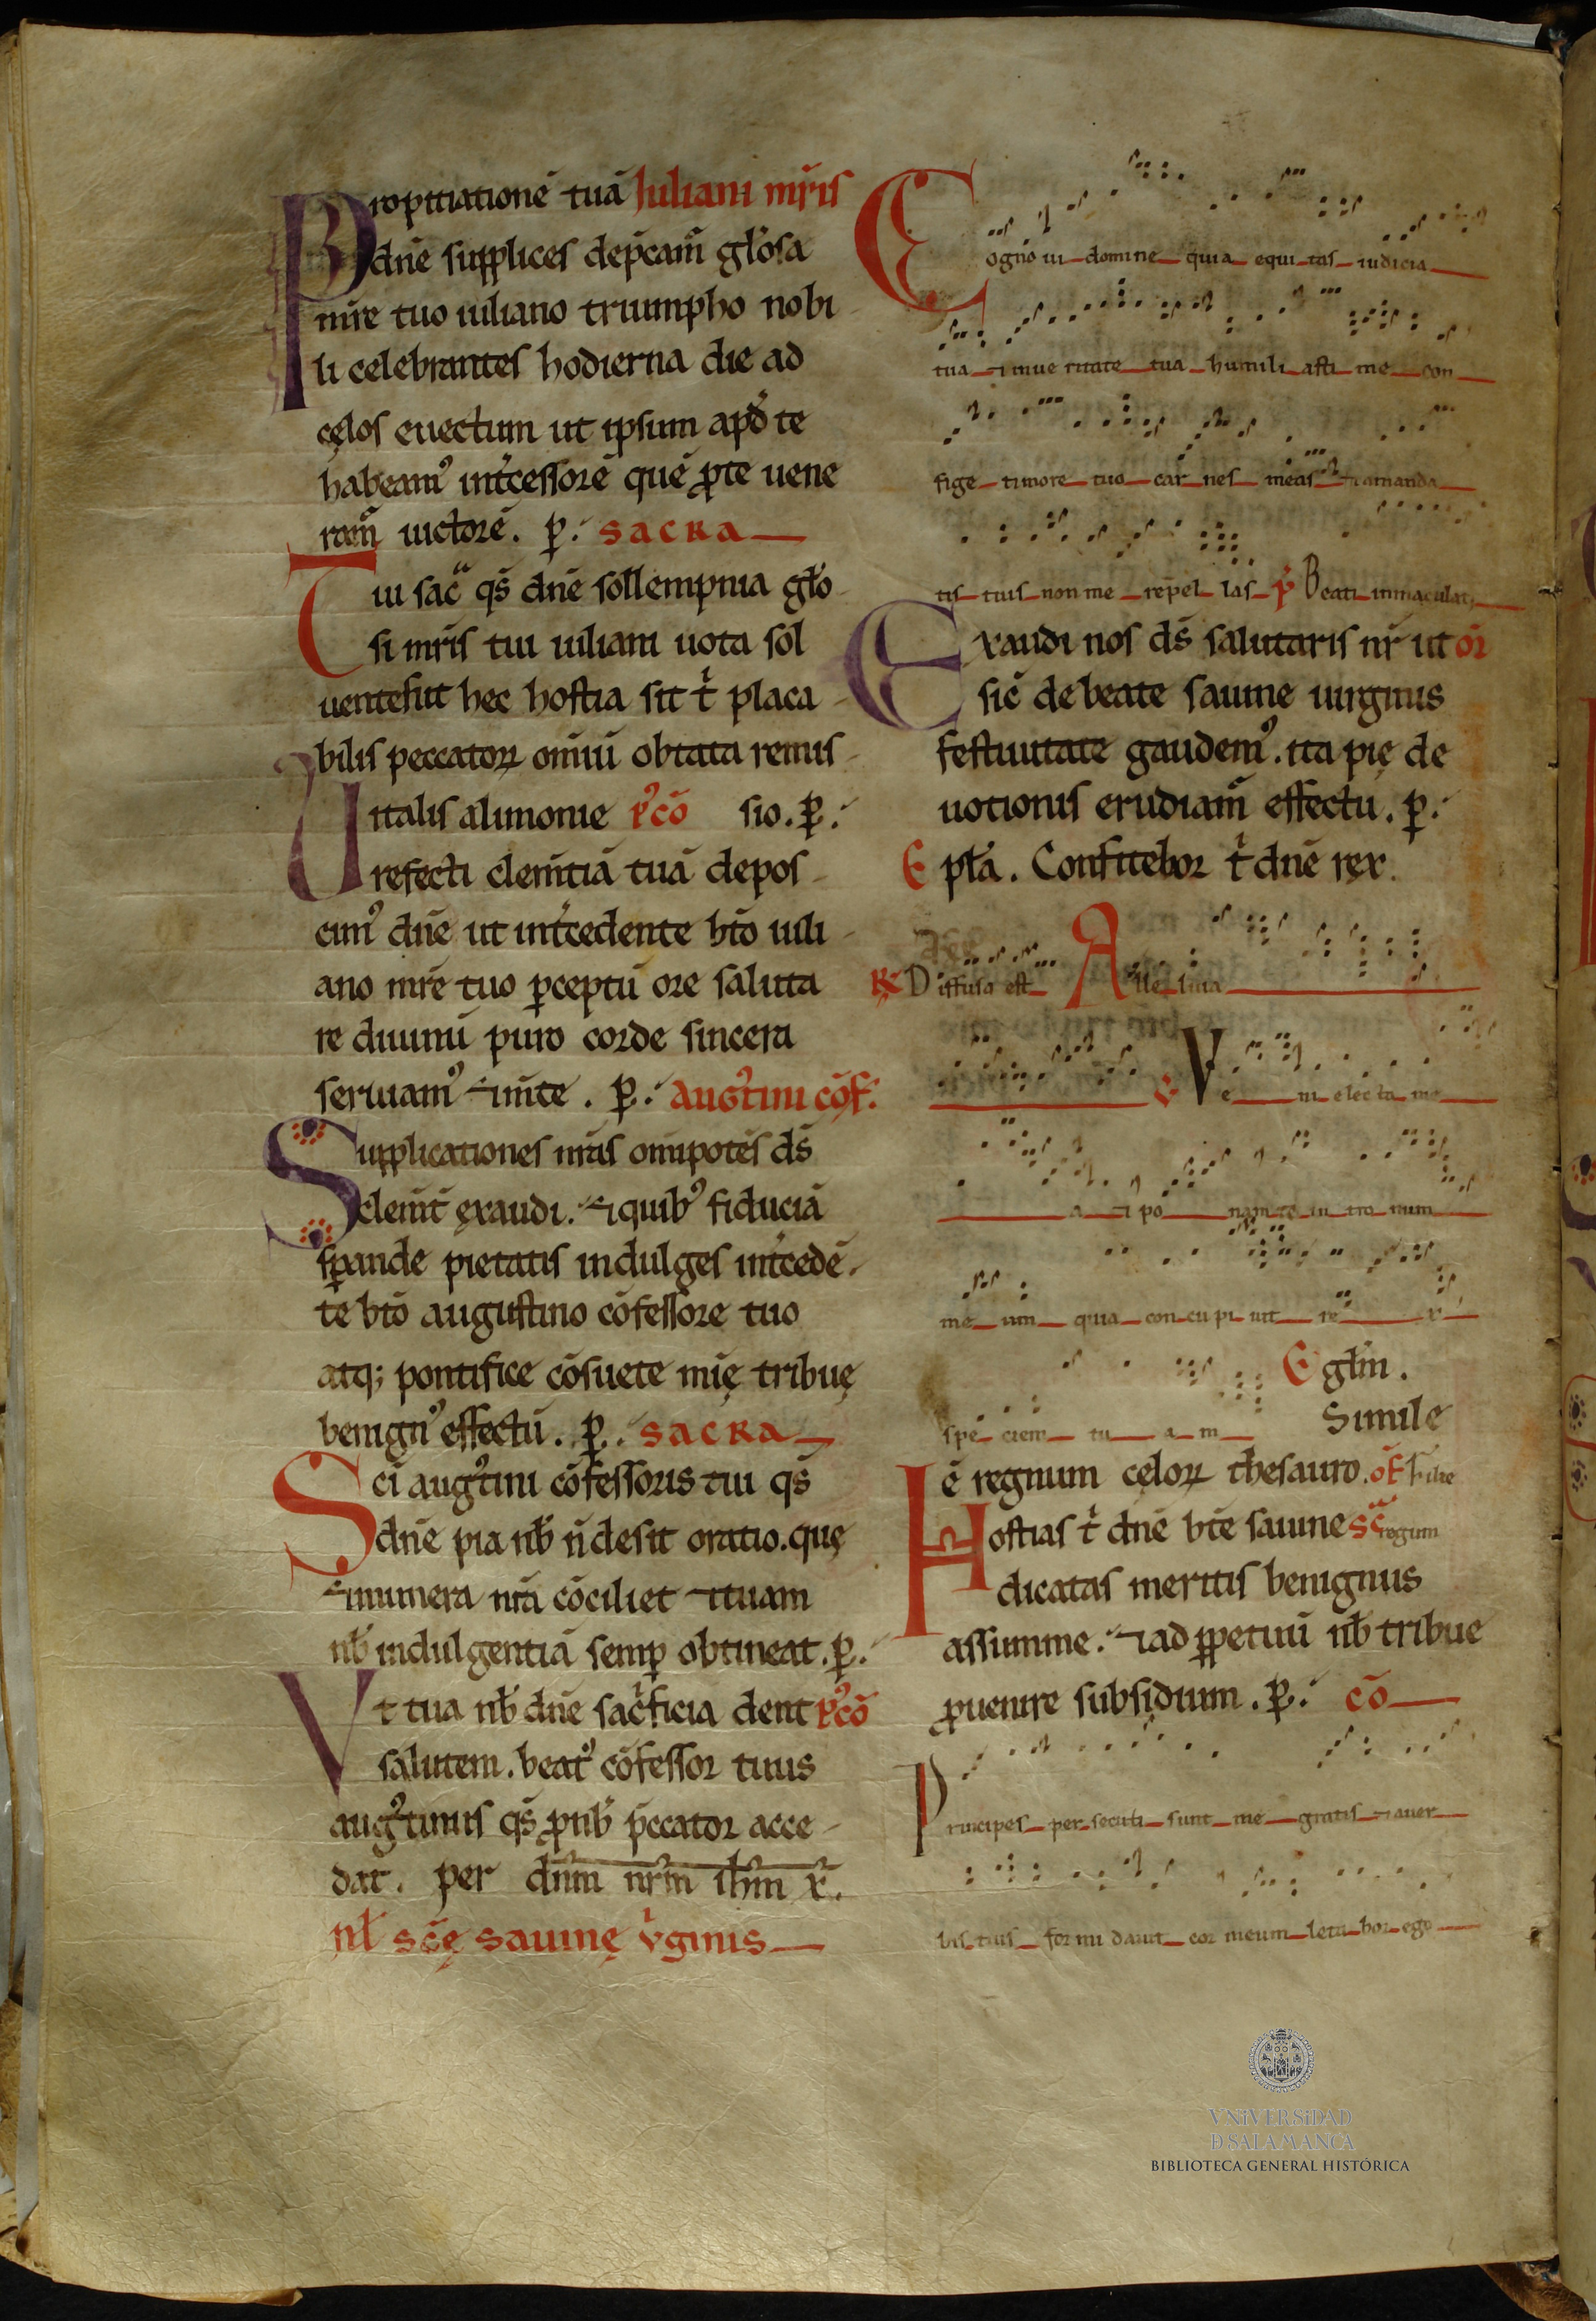 Propitiationē tuā Iuliani mr̄is
dn̄e supplices dep̄camͬ gl̓osa
mr̄e tuo iuliano triumpho nobi
li celebrantes hodierna die ad
cęlos euectum ut ipsum apd̓ te
habeamꝰ int̓cessorē quē ꝓ te uene
ramͬ uictorē. ꝑ. sacra
Tui sac̄ qs̄ dn̄e sollempnia gl̓o
si mr̄is tui iuliani uota sol
uentes ut hec hostia sit t̓ placa
bilis peccatoꝝ om̄iū obtata remis
Uitalis alimonie pꝰcō sio. ꝑ.
refecti clem̄tiā tuā depos
cimꝰ dn̄e ut int̓cedente bt̄o iuli
ano mr̄e tuo ꝑceptū ore saluta
re diuinū puro corde sincera
seruamꝰ ⁊ m̄te. ꝑ. augꝰtini cōf.
Supplicationes nr̄as om̄ipotēs ds̄
clem̄t̄ ęxaudi. ⁊ quibꝰ fiduciā
sꝑande pietatis indulges int̓cedē
te bt̄o augustino cōfessore tuo
atq; pontifice cōsuete mię tribuę
benignꝰ effectū. ꝑ. sacra
Sci augꝰtini cōfessoris tui qs̄
dn̄e pia nb̄ n̄ desit oratio. quę
⁊ munera nr̄a cōciliet ⁊ tuam
nb̄ indulgentiā semꝑ obtineat. ꝑ.
Vt tua nb̄ dn̄e sac̓ficia dent pꝰcō
salutem. beatꝰ cōfessor tuus
augꝰtinus qs̄ ꝓ nb̄ p̄ccator acce
dat. per dn̄m nr̄m ih̄m x̄.
nl̄ sc̄ę sauinę v̓ginis
Cognoui domine quia equitas iudicia
tua ⁊ in ueritate tua humiliasti me con
fige timore tuo carnes meas ⁊ a manda
tis tuis non me repellas p̄ Beati inmaculati
Exaudi nos ds̄ salutaris nr̄ ut or̄
sic̄ de beate sauine uirginis
festiuitate gaudemꝰ. ita pię de
uotionis erudiamͬ effectu. ꝑ.
Epl̄a. Confitebor t̓ dn̄e rex.
℟ Diffusa est Alleluia
℣ Veni electa me
a ⁊ ponam te in tronum
meum quia concupiuit rex
Egl̄m.
speciem tuam Simile
ē regnum cęloꝝ thesauro. of̄ Filie
Hostias t̓ dn̄e bt̄e sauine sc̄ regum
dicatas meritis benignus
assumme. ⁊ ad ꝑpetuū nb̄ tribue
ꝓuenire subsidium. ꝑ. cō
Principes persecuti sunt me gratis ⁊ a uer
bis tuis formidauit cor meum letabor ego
VNiVERSiDAD
D SALAMANCA
BIBLIOTECA GENERAL HISTÓRICA